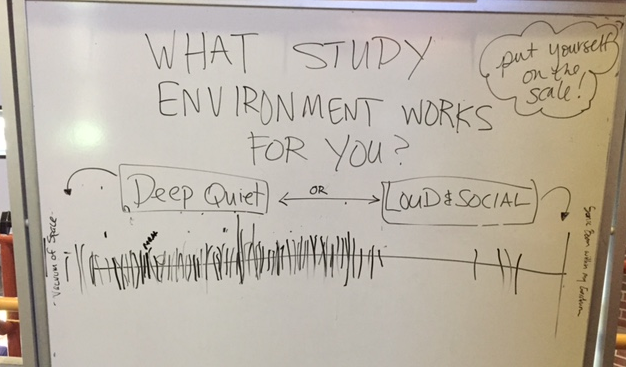 WHAT STUDY
ENVIRONMENT WORKS
FOR YOU?
put yourself
on the
scale!
Deep Quiet
OR
LOUD & SOCIAL
Vacuum of Space
Sonic Boom within my